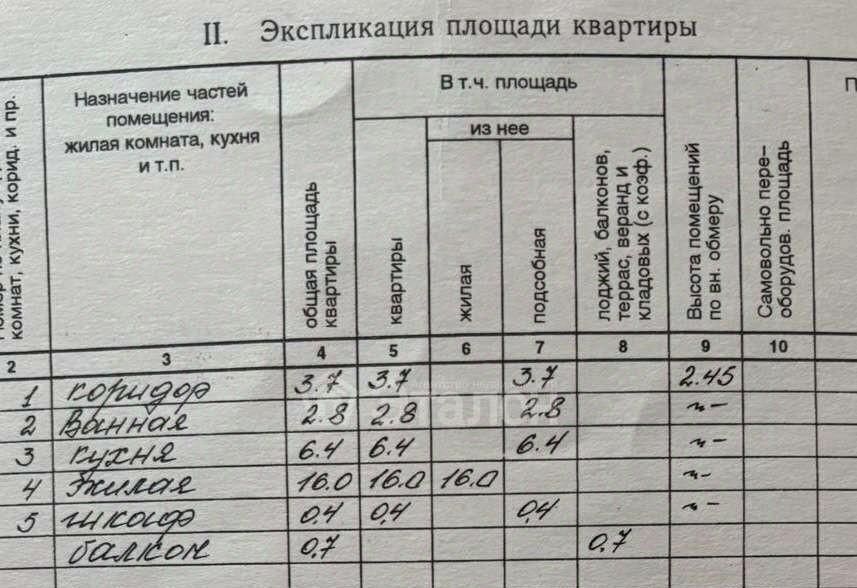 II. Экспликация площади квартиры
комнат, кухни, корид. и пр.
Назначение частей
помещения:
жилая комната, кухня
и т.п.
общая площадь
квартиры
В т.ч. площадь
квартиры
из нее
жилая
подсобная
лоджий, балконов,
террас, веранд и
кладовых (с коэф.)
Высота помещений
по вн. обмеру
Самовольно пере-
оборудов. площадь
П
2 3 4 5 6 7 8 9 10
1 коридор 3.7 3.7 3.7 2.45
2 Ванная 2.8 2.8 2.8 -"-
3 кухня 6.4 6.4 6.4 -"-
4 Жилая 16.0 16.0 16.0 -"-
5 шкаф 0,4 0,4 0,4 -"-
балкон 0,7 0.7